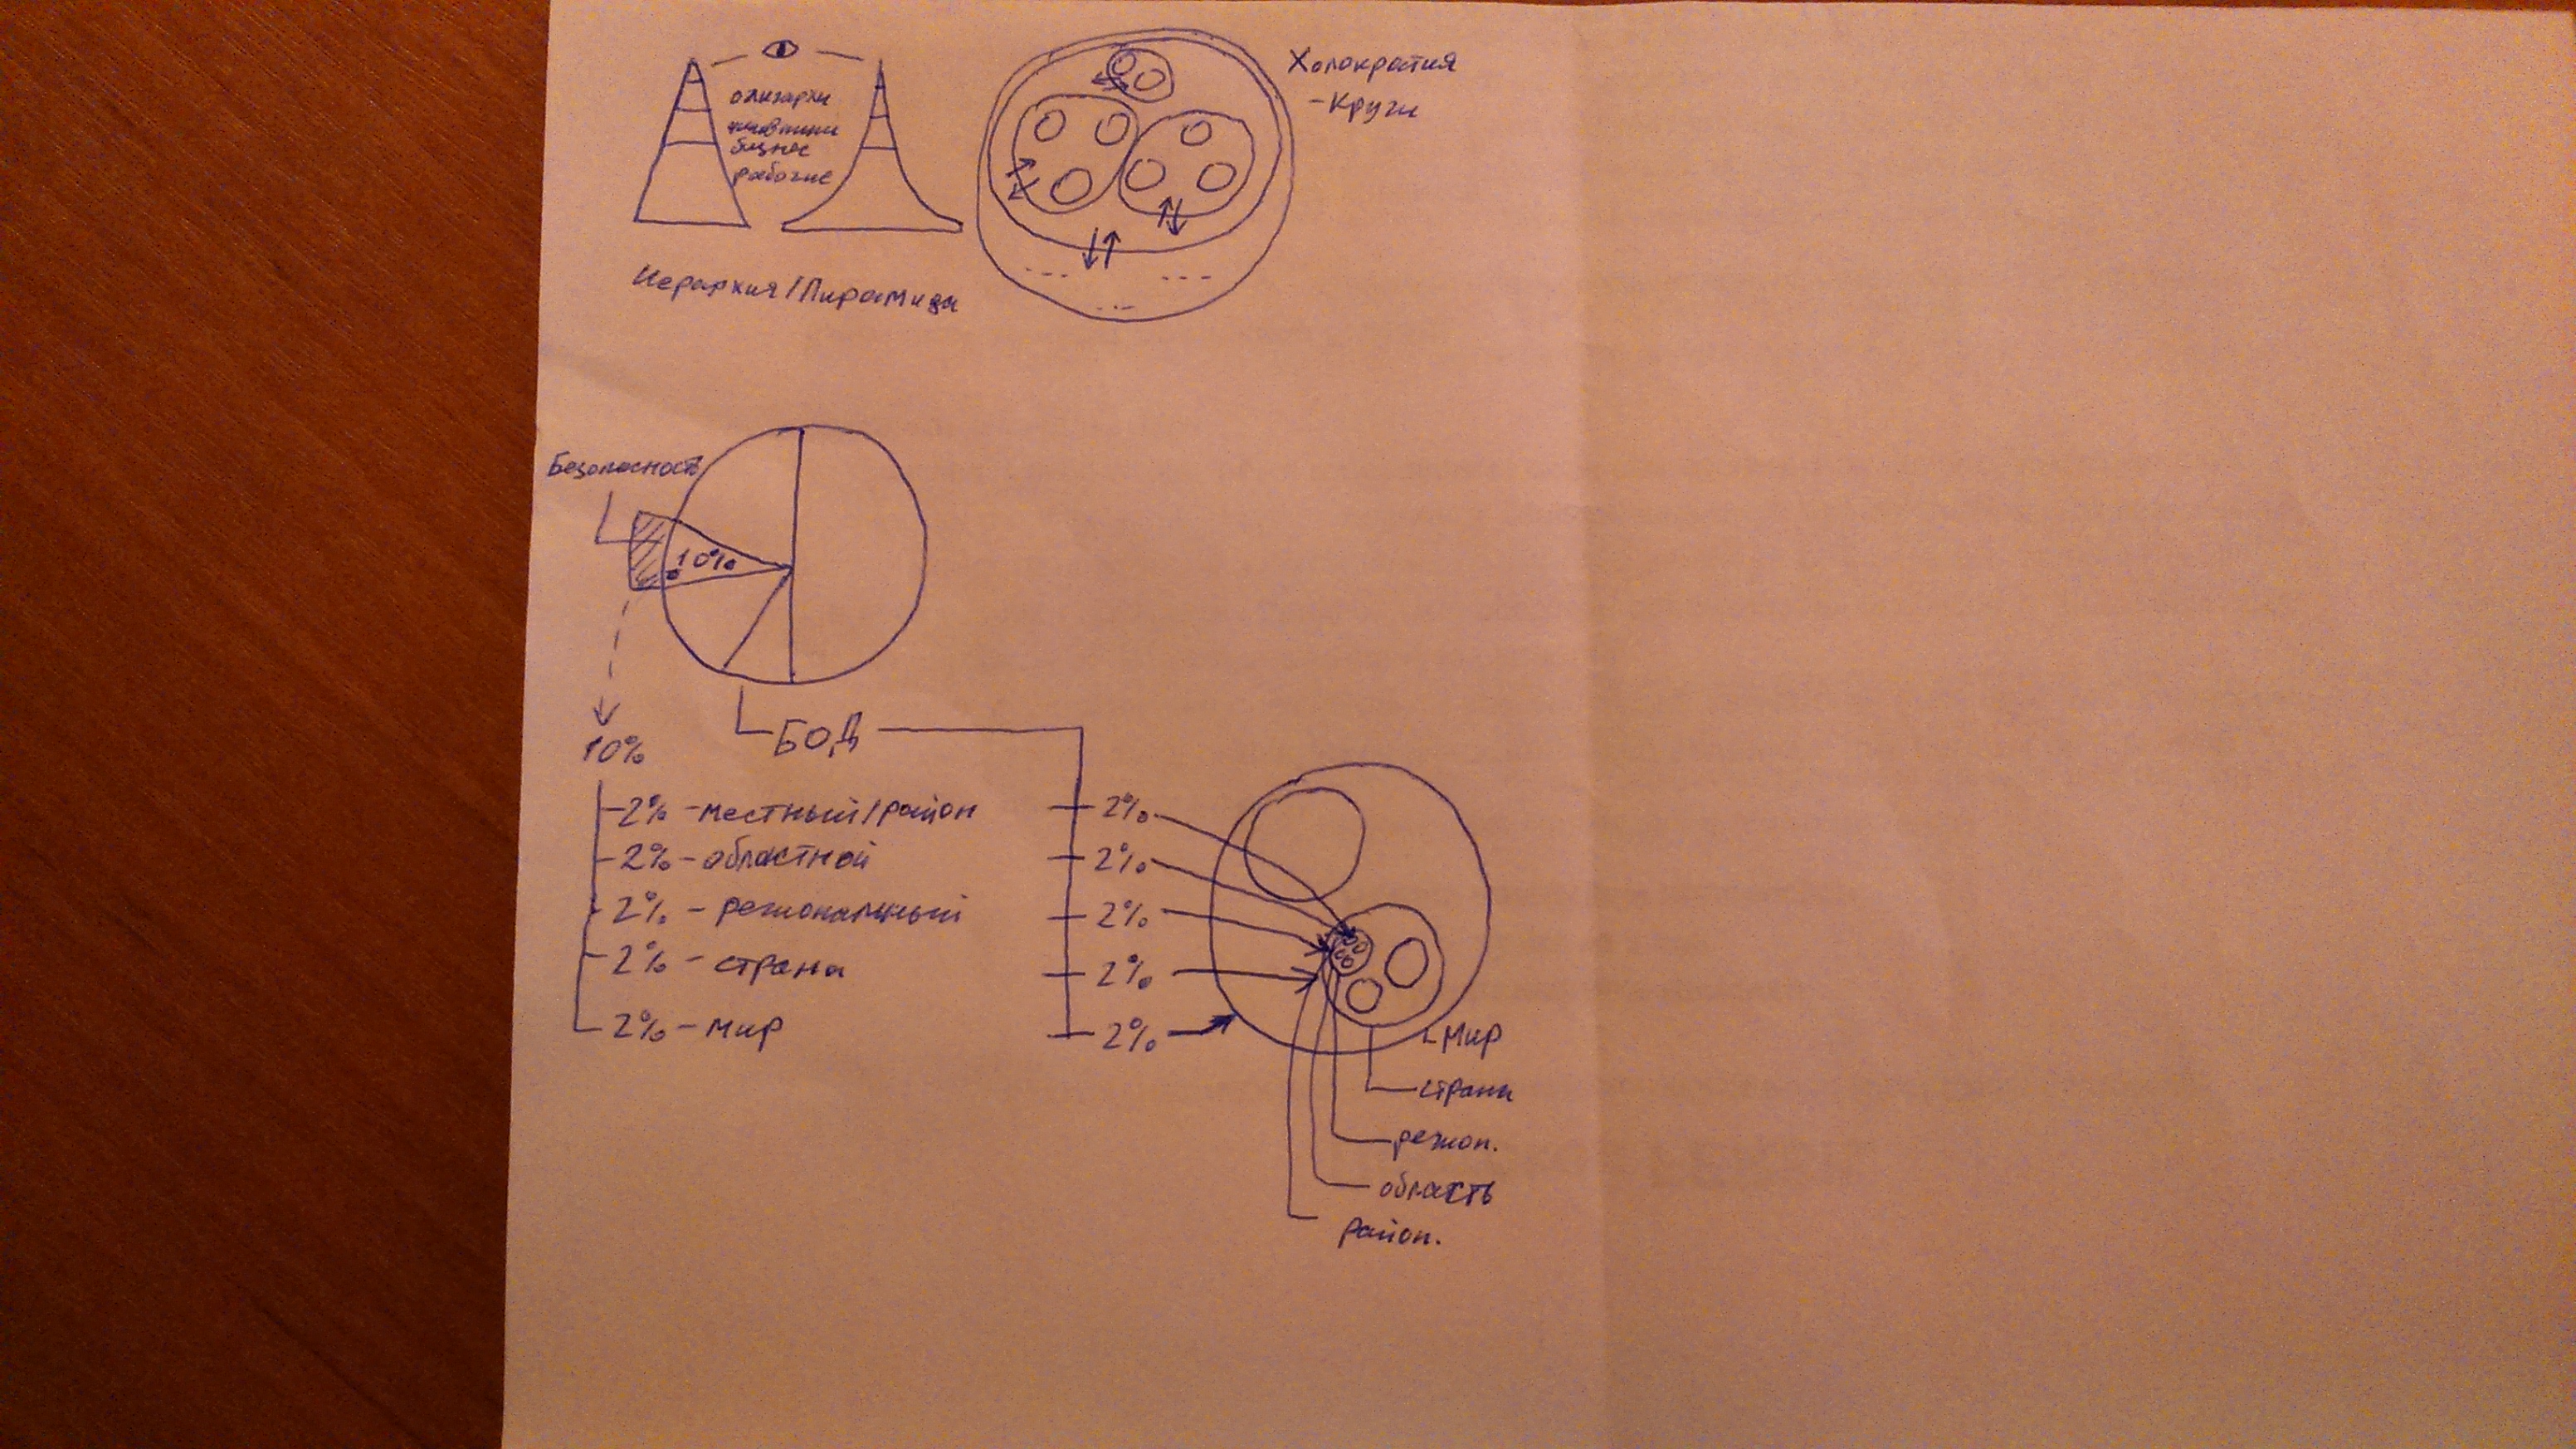 олигархи
бизнес
рабочие
Иерархия/Пирамида
Холократия
- круги
Безопасность
10%
БОД
10%
2% - местный/район
2% - областной
2% - региональный
2% - страна
2% - мир
2%
2%
2%
2%
2%
Мир
страна
регион.
область
район.